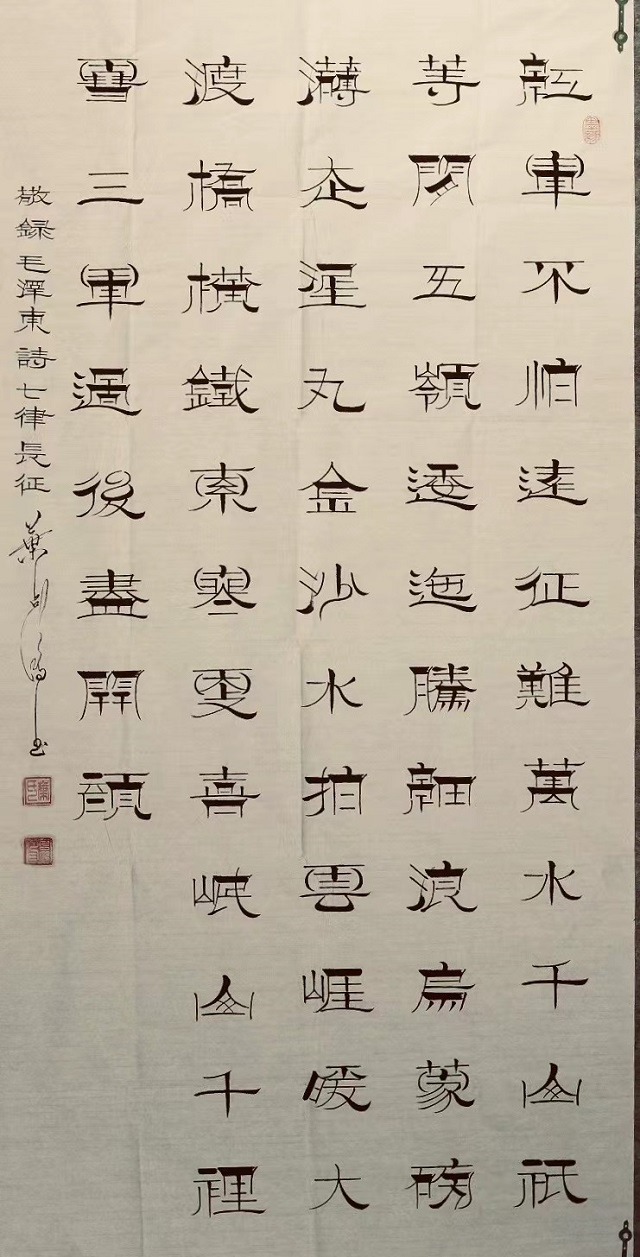 紅軍不怕遠征難萬水千山祇
等閒五嶺逶迤騰細浪烏蒙磅
薄走泥丸金沙水拍雲崖暖大
渡橋橫鐵索寒更喜岷山千裡
雪三軍過後盡開顏
敬録毛澤東詩七律長征 葉